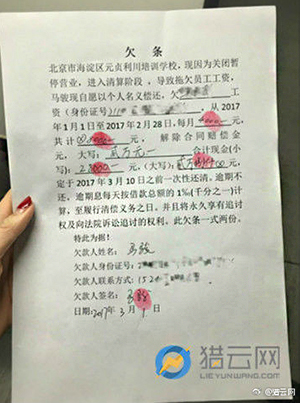 欠 条
北京市海淀区元贞利川培训学校，现因为关闭暂
停营业，进入清算阶段、导致拖欠员工工资，
马骏现自愿以个人名义偿还，欠
资（身份证号）
月1日至2017年2月28日，每月4000元，
共计8000元， 解除合同赔偿金
元，大写：贰万元 合计现金（小
写）：28000元，（大写）：贰万捌仟元，
定于2017年3月10日之前一次性还清。逾期不
还，逾期息每天按借款总额的1‰（千分之一）计
算，至履行清偿义务之日。并且将永久享有追讨
权及向法院诉讼追讨的权利。此欠条一式两份。
特此为据！
欠款人姓名：马骏
欠款人身份证号：
欠款人联系方式：152
欠款人签名：马骏
日期:2017年3月1日
猎云网
LIEYUNWANG.COM
@猎云网